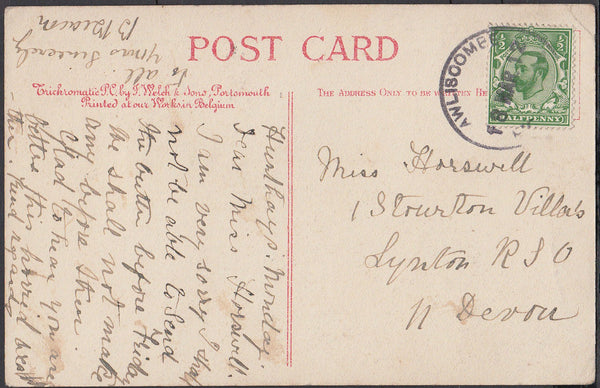 POST CARD
Trichromatic P.C. by J. Welch & Sons, Portsmouth
Printed at our Works in Belgium
THE ADDRESS ONLY TO BE WRITTEN
AWLISCOMBE
MAR
1/2 1/2
HALFPENNY
Miss Horswell
1 Stourton Villa's
Lynton R S O
N Devon
Monday.
Dear Miss Horswell.
I am very sorry I shall
not be able to send
the butter before Friday
We shall not make
any before then.
Glad to hear you are
better this horrid weath
-er. Kind regards
to all.
Yours Sincerely
B